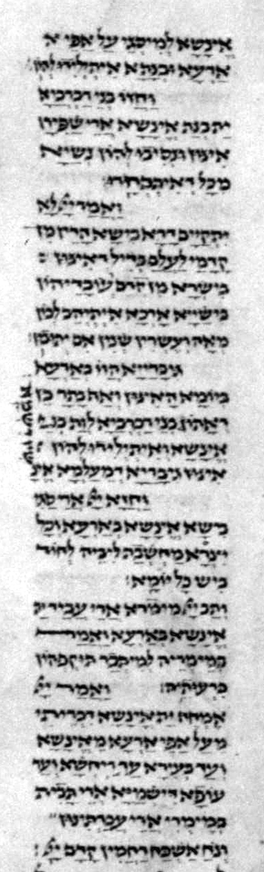 אינשא למיסגי על אפי א
ארעא ובנתא איתילידו להון
וחזו בני רברביא
ית בנת אינשא ארי שפירן
אינון ונסיבו להון נשיא
מכל
ואמר ייי לא
יתקיים דרא בישא הדין מן
קדמי לעלם בדיל דאינון
בישרא מן קדם עובדיהון
בישייא ארכא איתיהב להון
מאה ועשרין שנין אם יתובון
גיברייא הוו בארעא
ביומיא האינון ואף בתר כן
דאתון בני רברביא לות בנת
אינשא ואיתילידו להון
אינון גיבריא דמעלמא אינ
וחזא ייי ארי סגי
בישא אינשא בארעא וכל
יצרא מחשבת ליביה להוד
ביש כל יומא׃
ותב ייי במימרא ארי עביד ית
אינשא בארעא ואמר
במימריה למיתבר תוקפהון
ברעותיה׃ ואמר ייי
אמחה ית אינשא דבריתי
מעל אפי ארעא מאינשא
ועד בעירא עד ריחשא ועד
עופא דישמייא ארי תבית
במימרי ארי עבדתינון
ונח אשכח רחמין קדם ייי׃